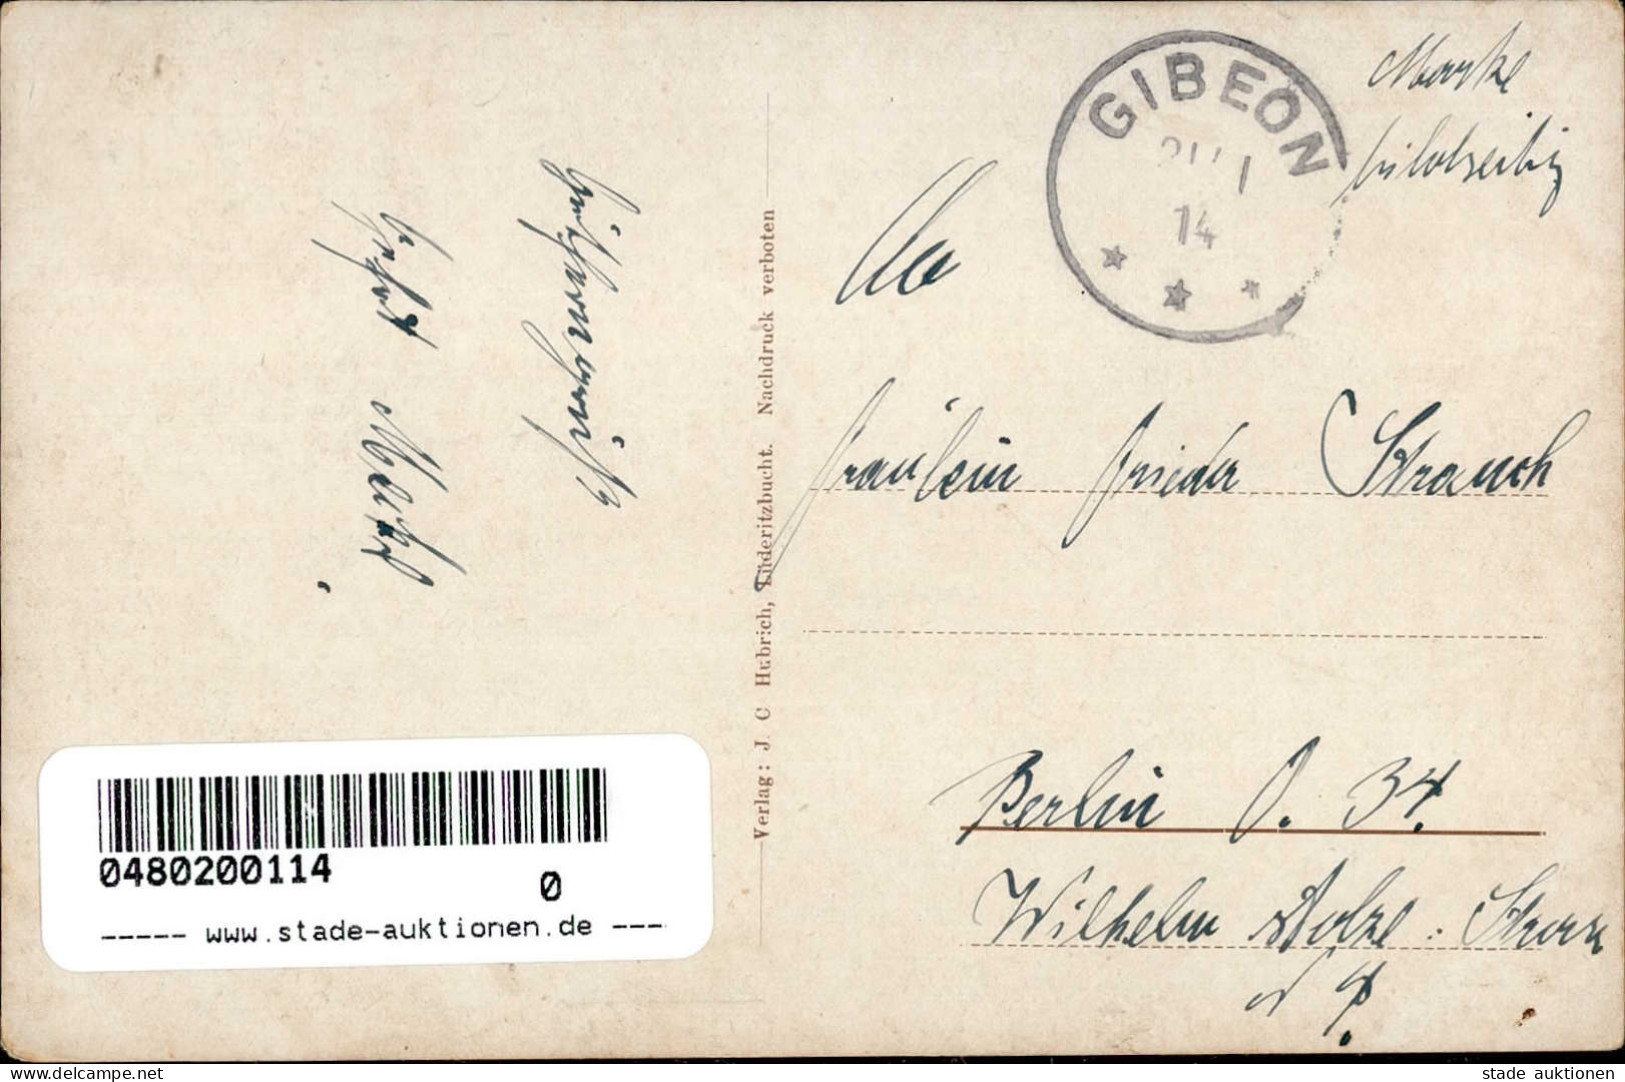 GIBEON
1
14
Marke
bildseitig
An
Fräulein Frieda Strauch
Berlin O. 34.
Wilhelm Stolze-Strasse
Verlag: J. C Hubrich, Lüderitzbucht. Nachdruck verboten
0480200114
0
----- www.stade-auktionen.de ---
www.delcampe.net
stade auktionen